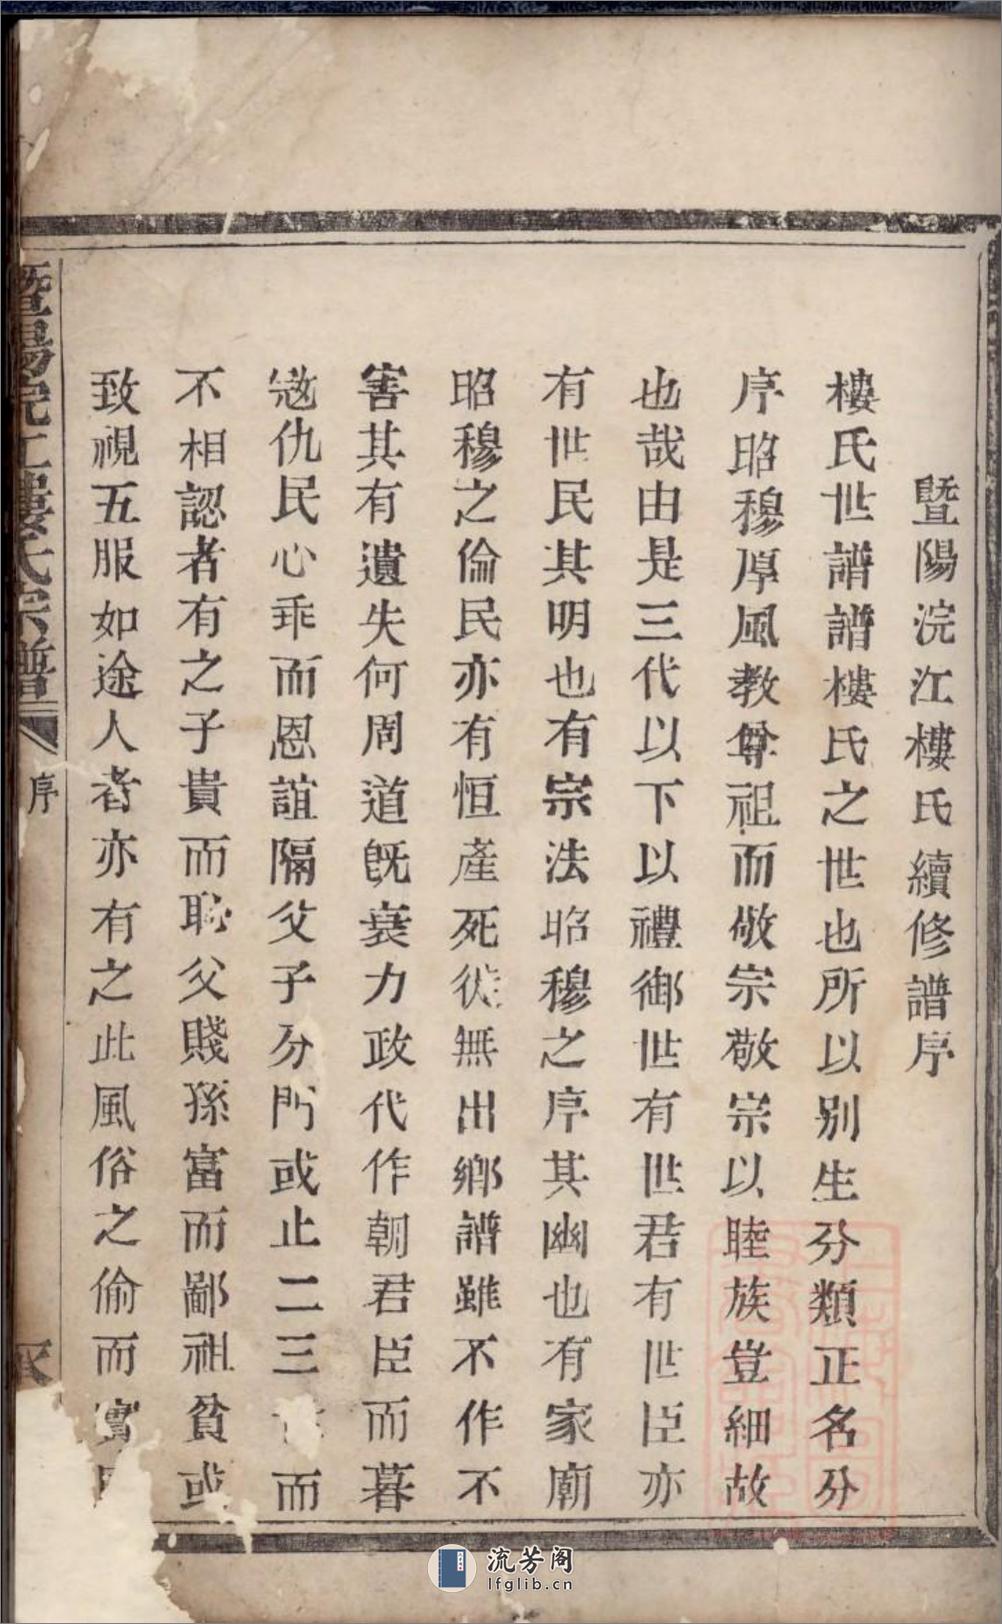 暨陽浣江樓氏續修譜序
樓氏世譜譜樓氏之世也所以別生分類正名分
序昭穆厚風教尊祖而敬宗敬宗以睦族豈細故
也哉由是三代以下以禮御世有世君有世臣亦
有世民其明也有宗法昭穆之序其幽也有家廟
昭穆之倫民亦有恒產死徙無出鄉譜雖不作不
害其有遺失何周道既衰力政代作朝君臣而暮
寇仇民心乖而恩誼隔父子分門或止二三而
不相認者有之子貴而恥父賤孫富而鄙祖貧或
致視五服如途人者亦有之此風俗之偷而實
暨陽浣江樓氏宗譜
序
流芳阁
lfglib.cn